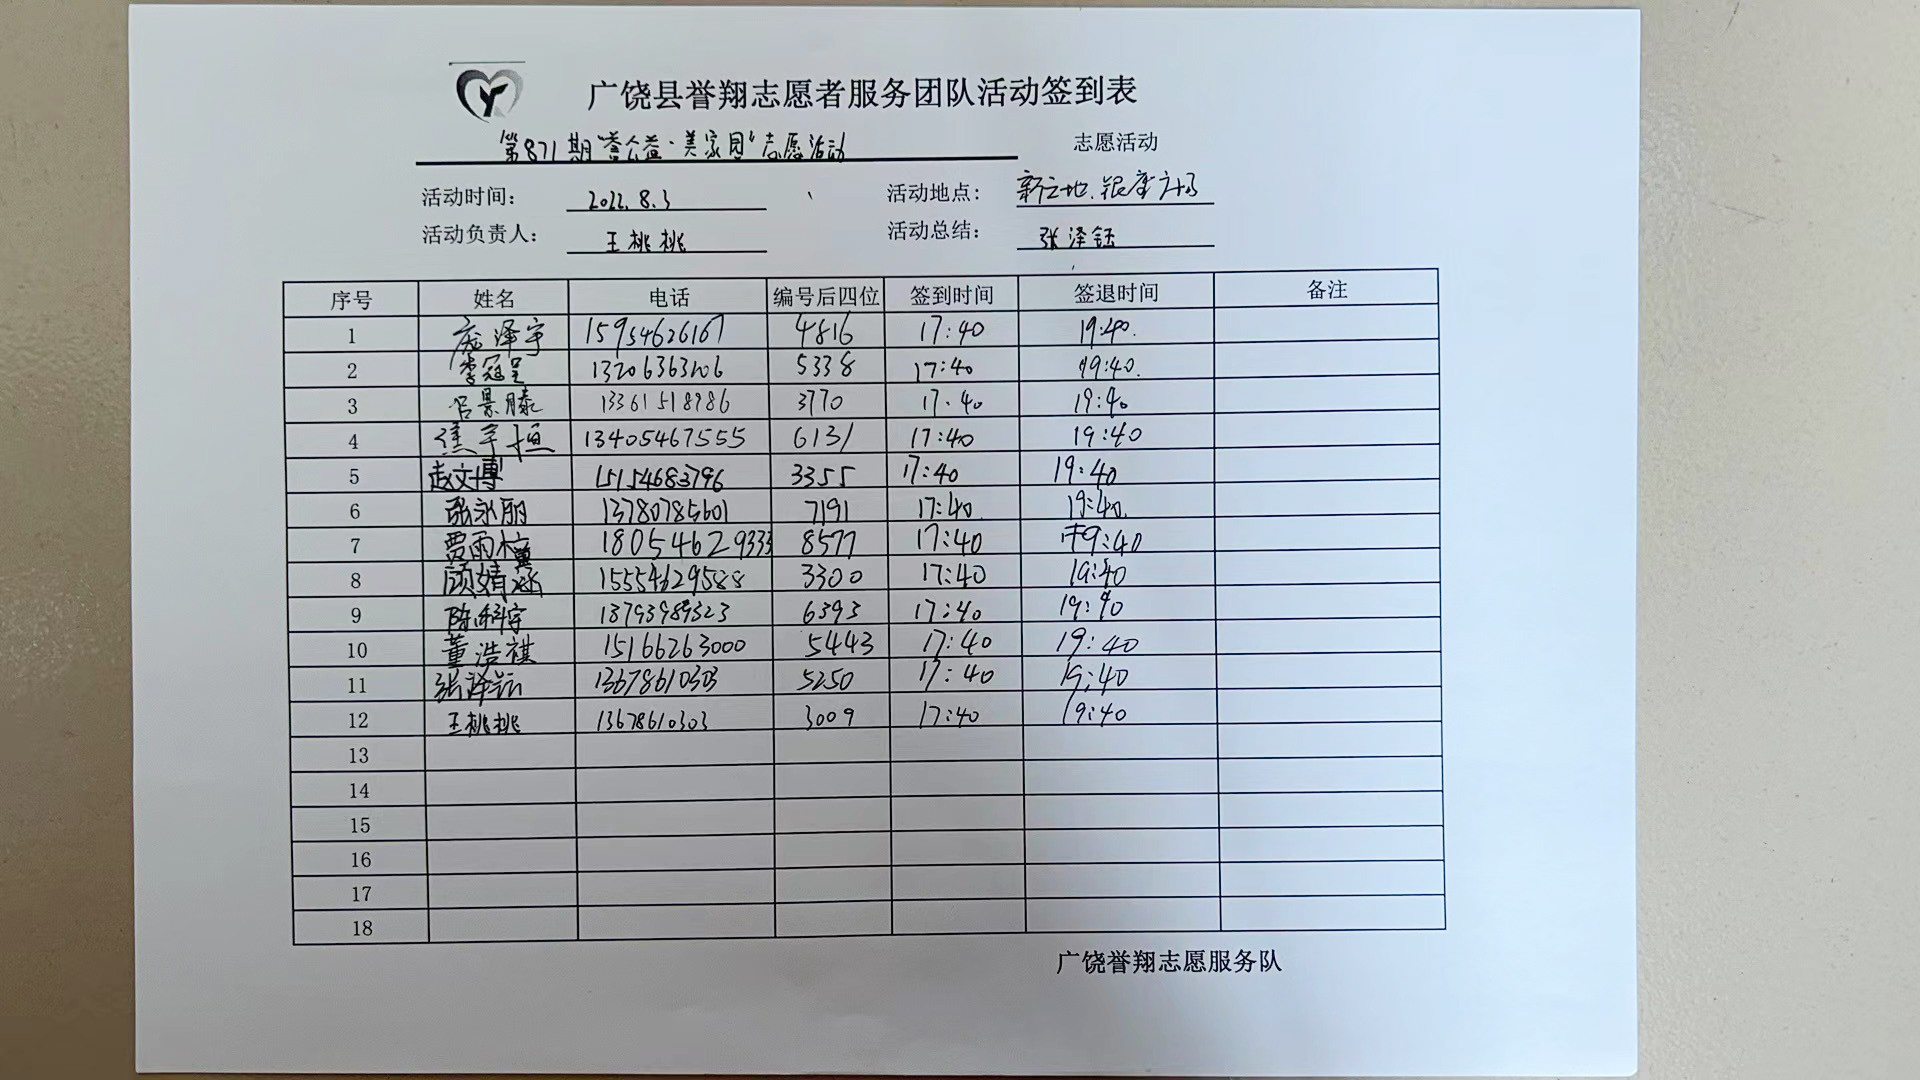 广饶县誉翔志愿者服务团队活动签到表
第871期"誉公益·美家园"志愿活动 志愿活动
活动时间: 2022.8.3 活动地点: 新立地.银座广场
活动负责人: 王桃桃 活动总结: 张泽钰
序号 姓名 电话 编号后四位 签到时间 签退时间 备注
1 庞泽宇 15954626167 4816 17:40 19:40.
2 李冠呈 13206363206 5338 17:40 19:40.
3 吕景滕 13361518986 3770 17:40 19:40
4 焦宇恒 13405467555 6131 17:40 19:40
5 赵文博 15154683796 3355 17:40 19:40
6 张永丽 13780785601 7191 17:40. 19:40.
7 贾雨 18054629333 8577 17:40 19:40
8 顾婧涵 15554629588 3300 17:40 19:40
9 陈科宇 13793989323 6393 17:40 19:40
10 董浩祺 15166263000 5443 17:40 19:40
11 张泽钰 13678610303 5250 17:40 19:40
12 王桃桃 13678610303 3009 17:40 19:40
13
14
15
16
17
18
广饶誉翔志愿服务队